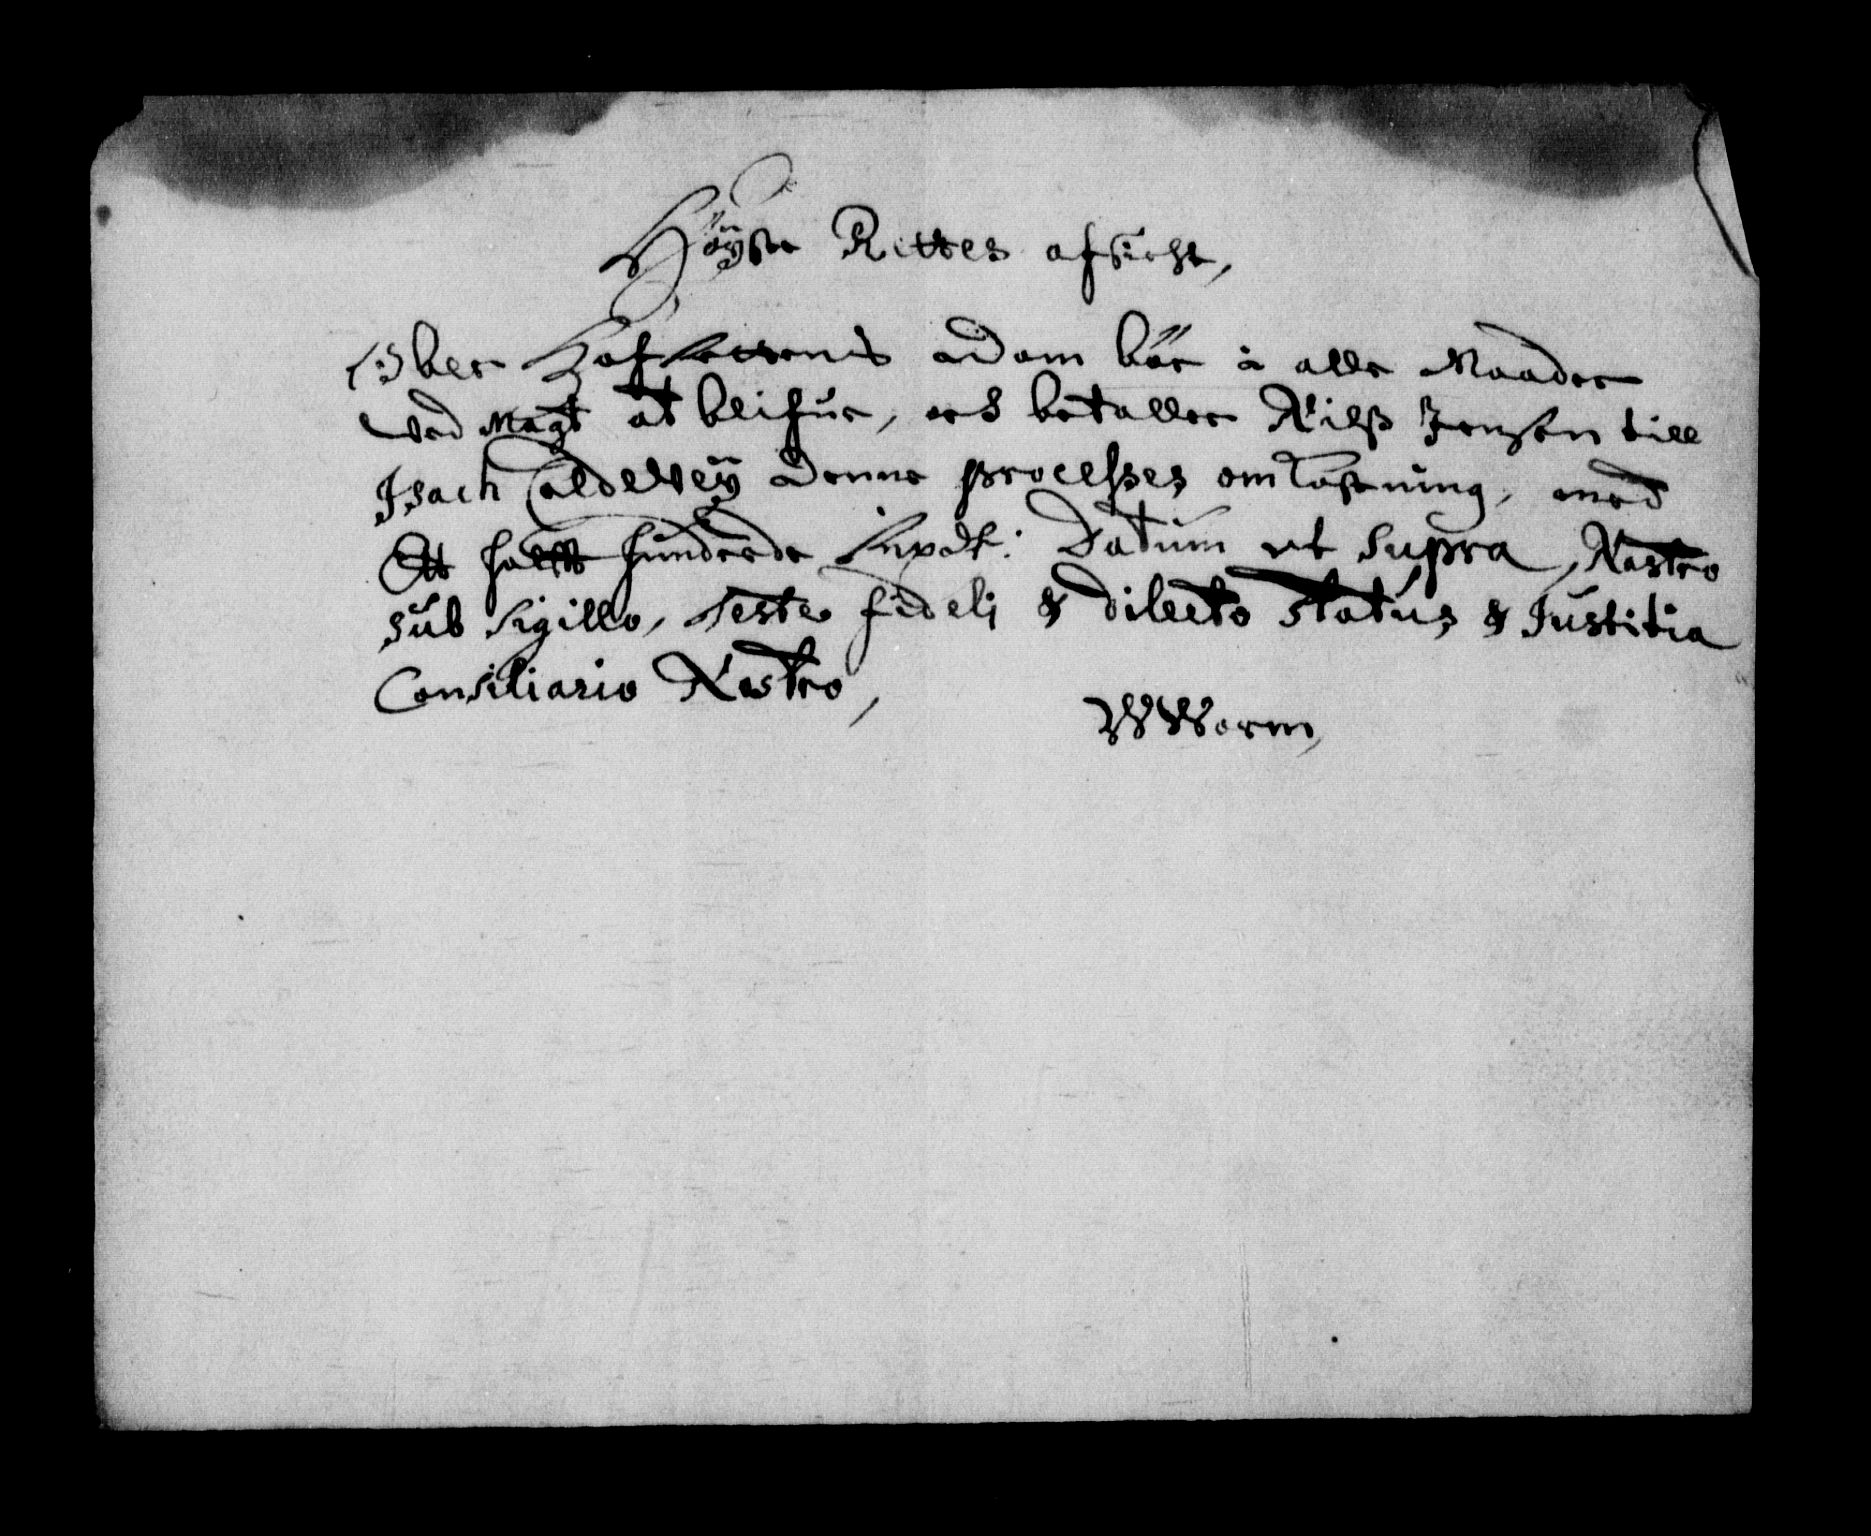 Höÿste Rettes afsicht,
Ober Hof Rettens adom bör i alle Maader
ved Magt at blifue, och betaller Nilß Jensen till
Isach Coldevey denne processes omkostning, med
Ett halfft hundrede Rixdlr: Datum ut supra, Nostro
sub sigillo, Teste fideli & dilecto status & Justitiæ
Consiliario Nostro,
WWorm,